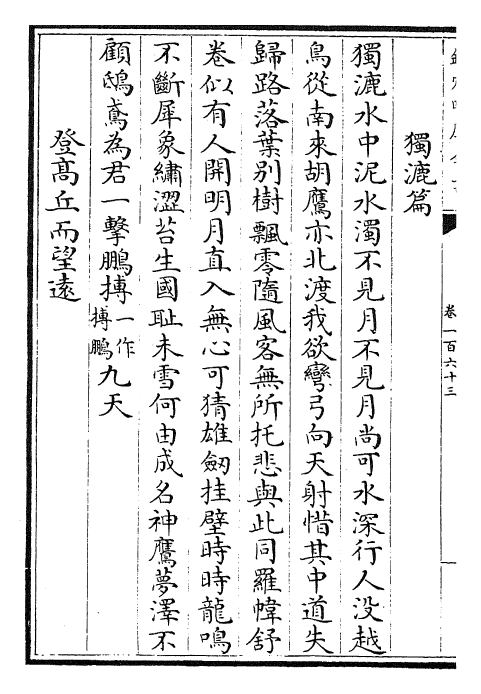 獨漉篇
獨漉水中泥水濁不見月不見月尚可水深行人没越
鳥從南來胡鷹亦北渡我欲彎弓向天射惜其中道失
歸路落葉别樹飄零隨風客無所托悲與此同羅幃舒
卷似有人開明月直入無心可猜雄劒挂壁時時龍鳴
不斷犀象繡澀苔生國耻未雪何由成名神鷹夢澤不
顧鴟鳶為君一擊鵬摶一作摶鵬九天
登髙丘而望遠
卷一百六十三